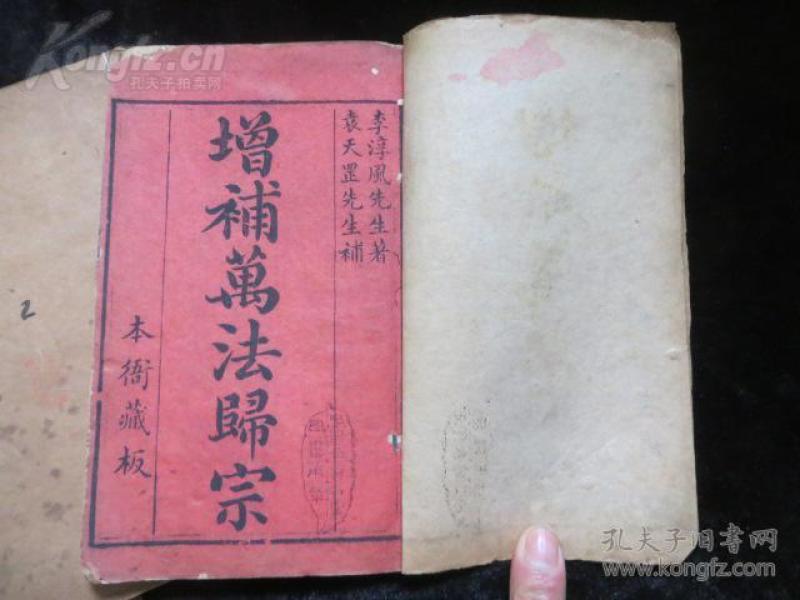 李淳風先生著
袁天罡先生補
增補萬法歸宗
本衙藏板
2
Kongfz.cn
孔夫子拍卖网
孔夫子旧书网
www.kongfz.com